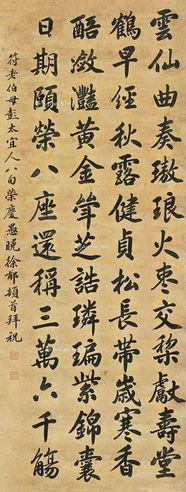 雲仙曲奏璈琅火枣交棃獻壽堂
鶴早經秋露健貞松長帶歲寒香
醅瀲灩黃金斝芝誥璘㻞紫錦囊
日期頤榮八座還稱三萬六千觴
符老伯母彭太宜人八旬榮慶愚晚徐郙頓首拜祝